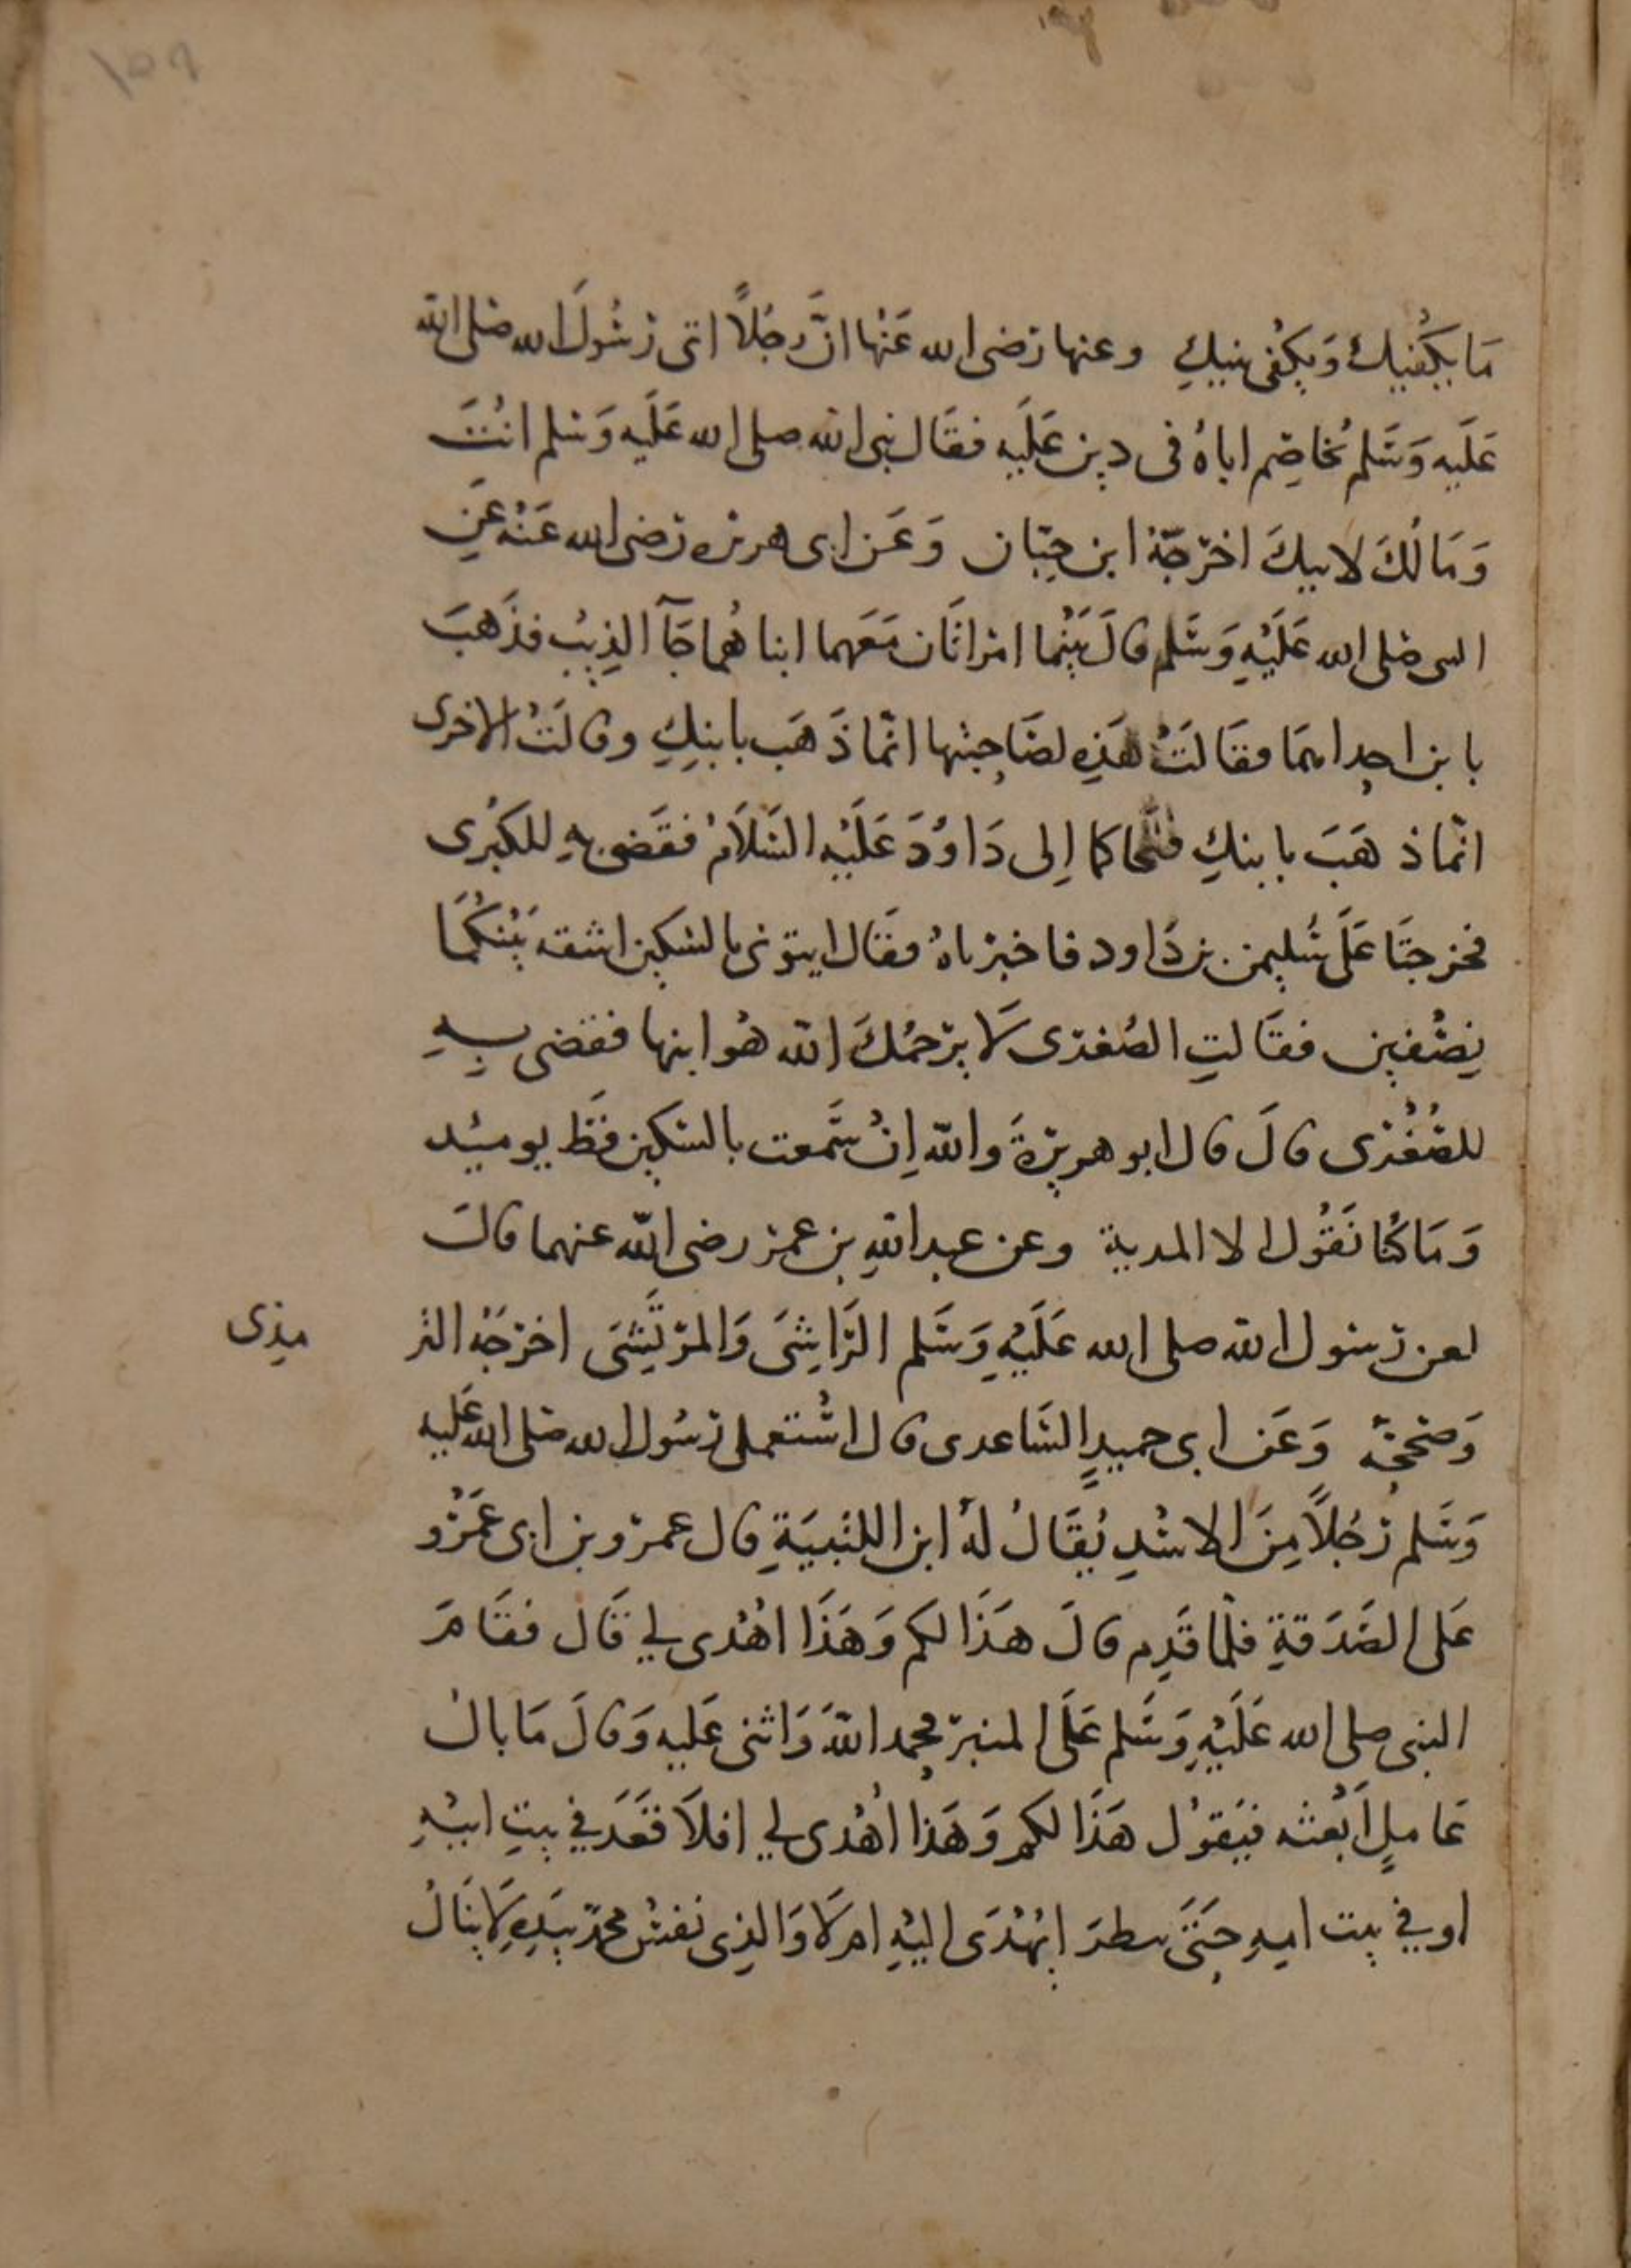 ١٥٩
مَا يكفيكِ وَيكفى بنيكِ وعنها رضى الله عَنْها انَّ رجُلاً اتى رسُولَ الله صلى الله
عَلَيه وَسَلم يُخاصِم اباهُ فى دين عَلَيه فقَال نبى الله صلى الله عَلَيه وَسلم انْتَ
وَمَالُكَ لابيكَ اخرَجَهُ ابن حِبّان وَعَن ابى هريره رَضى الله عَنْه عَنِ
النبى صَلى الله عَلَيْهِ وَسَلم قالَ بَيْنما امرَاتَان مَعَهما ابناهُما جَآ الذِيبُ فذَهبَ
بابن احِداهمَا فقَالَتْ هَذِه لصَاحِبتها انّما ذَهَب بابنِكِ وقالَتْ الاخرى
انّما ذهَبَ بابنكِ فتحاكما إِلى دَاوُدَ عَلَيْه السَلاَمُ فقَضى بهِ للكبْرى
فخرجتَا عَلَى سُليمن بن دَاود فاخبرتاهُ فقَال ايتونى بالسكين اشقه بَيْنكُمَا
نِصْفين فقَالتِ الصُغرَى لَا يرْحمُكَ الله هُو ابنها فقضى بهِ
للصُغْرَى قالَ قال ابو هريرةَ والله اِنْ سَّمعت بالسكين قط يوميئد
وَمَا كُنا نَقُول الا المدية وعن عبد اللهِ بن عمر رضى الله عنهما قالَ
لعن رسول الله صلى الله عَلَيْهِ وَسَلم الرَاشِىَ وَالمرتَشِىَ اخرجَهُ التر
مذى
وَصَححَهُ وَعَن ابى حميدٍ السَاعدى قال اسْتعمل رَسُول الله صَلى الله عَليه
وَسَلم رَجُلاً مِنَ الاسْدِ يُقَالُ لهُ ابن اللتبيَةِ قال عمرو بن ابى عَمْرو
عَلى الصَدَقةِ فلما قَدِم قالَ هَذَا لكم وَهَذَا اهْدى لي قَال فقَامَ
النبى صلى الله عَلَيْهِ وَسَلم عَلَى المنبر فحمد اللهَ وَاثنى عَليه وَقالَ مَا بالُ
عَاملٍ اَبْعثه فيَقوُل هَذَا لكم وَهَذا اُهْدى لي افلاَ قعَدَ في بيتِ ابيْهِ
او في بيت امهِ حَتىَ ينظرَ ايُهْدَى اليْهِ ام لَا وَالذِى نفسُ محمدٍ بيَدِهِ لَا يَنَالُ